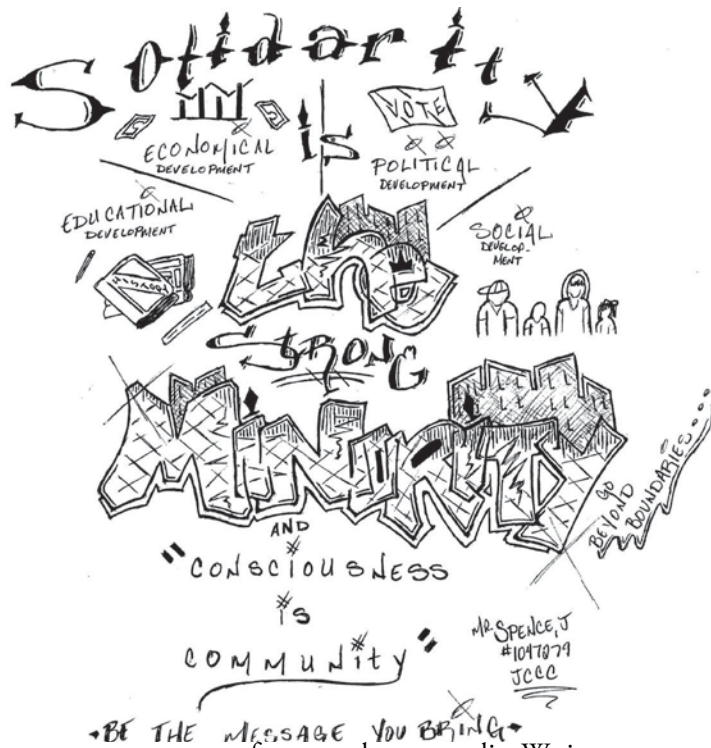 Solidarity
is
ECONOMICAL
DEVELOPMENT
VOTE
POLITICAL
DEVELOPMENT
EDUCATIONAL
DEVELOPMENT
SOCIAL
DEVELOP-
MENT
the
STRONG
MiNORiTY
GO
BEYOND
BOUNDARIES...
AND
"CONSCIOUSNESS
is
COMMUNITY"
MR SPENCE, J
#1047279
JCCC
BE THE MESSAGE YOU BRING